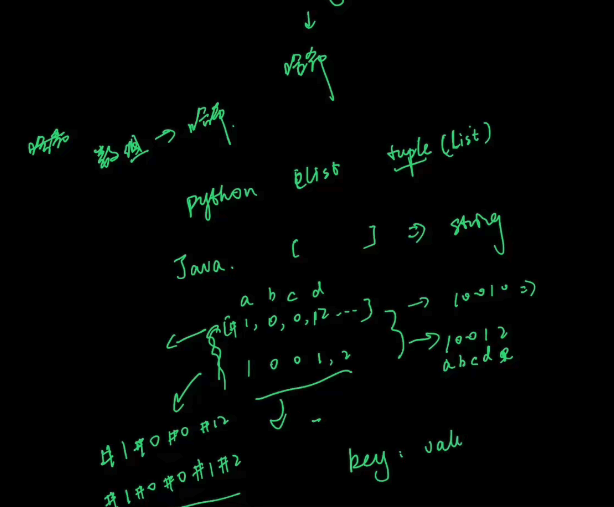 哈希
哈希 数组 → 哈希
python list tuple (list)
Java. [ ] ⇒ string
a b c d
[#1, 0, 0, 12 ...] → 10010 ⇒
1 0 0 1, 2 → 10012
abcd
#1#0#0#12
#1#0#0#1#2
key: val